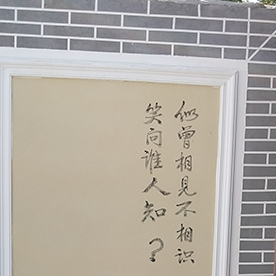 似曾相見不相识
笑问谁人知？